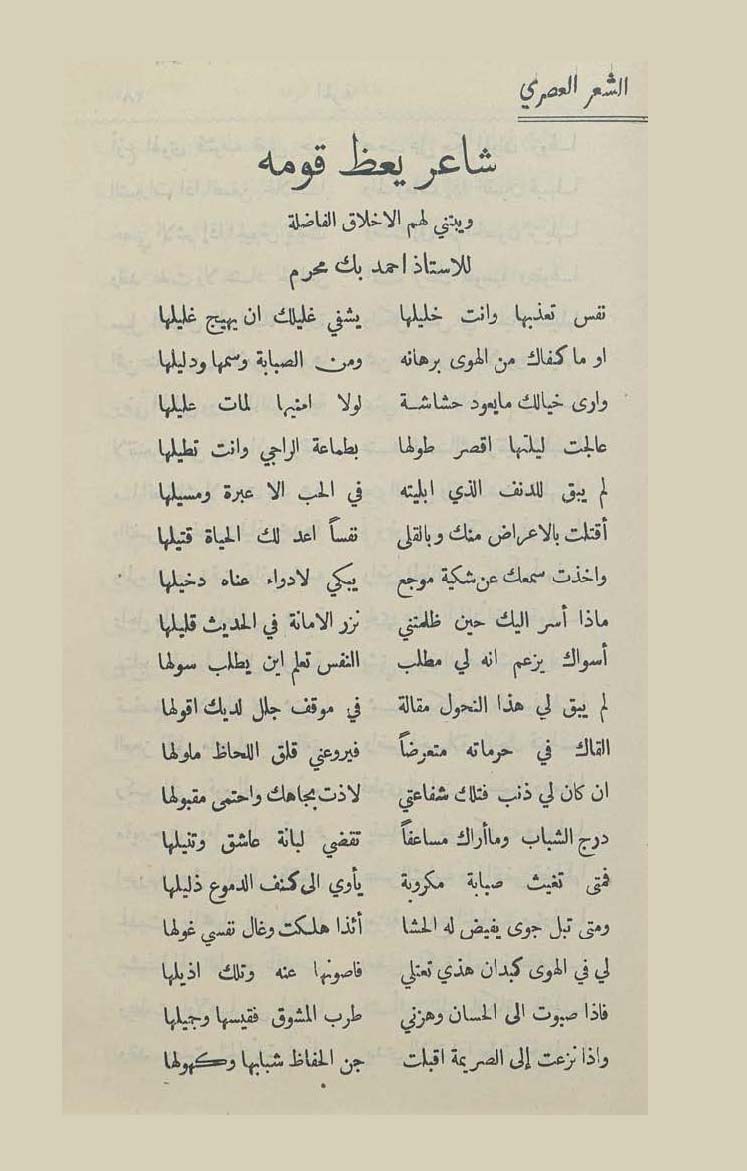 الشعر العصري
شاعر يعظ قومه
ويبتني لهم الاخلاق الفاضلة
للاستاذ احمد بك محرم
نفس تعذبها وانت خليلها يشفي غليلك ان يهيج غليلها
او ما كنفاك من الهوى برهانه ومن الصبابة وسمها ودليلها
وارى خيالك مايعود حشاشة لولا امنيها لمات عليلها
عالجت ليلتها اقصر طولها بطماعة الراجي وانت تطيلها
لم يبق للدنف الذي ابليته في الحب الا عبرة ومسيلها
أقتلت بالاعراض منك وبالقلى نفساً اعد لك الحياة قتيلها
واخذت سمعك عن شكية موجع يبكي لادواء عناه دخيلها
ماذا أسر اليك حين ظلمتني نزر الامانة في الحديث قليلها
أسواك يزعم انه لي مطلب النفس تعلم اين يطلب سولها
لم يبق لي هذا النحول مقالة في موقف جلل لديك اقولها
القاك في حرماته متعرضاً فيروعني قلق اللحاظ ملولها
ان كان لي ذنب فتلك شفاعتي لاذت بجاهك واحتمى مقبولها
درج الشباب وماأراك مساعفاً تقضي لبانة عاشق وتنيلها
فمتى تغيث صبابة مكروبة يأوي الى كنف الدموع ذليلها
ومتى تبل جوى يفيض له الحشا أئذا هلكت وغال نفسي غولها
لي في الهوى كبدان هذي تعتلي فاصونها عنه وتلك اذيلها
فاذا صبوت الى الحسان وهزني طرب المشوق فقيسها وجميلها
واذا نزعت إلى الصريمة اقبلت جن الحفاظ شبابها وكهولها